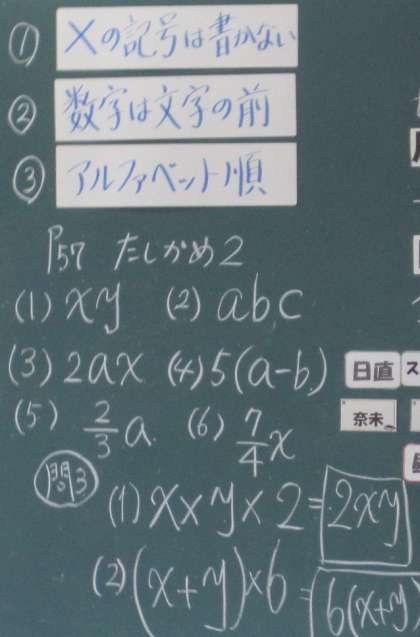 ① ×の記号は書かない
② 数字は文字の前
③ アルファベット順
P57 たしかめ2
(1) xy (2) abc
(3) 2ax (4) 5(a-b)
日直
(5) 2/3 a (6) 7/4 x
奈未
問3
(1) x×y×2=2xy
(2) (x+y)×6=6(x+y)